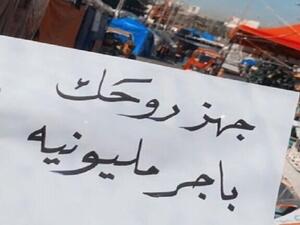 جهز روحك
باجر مليونيه